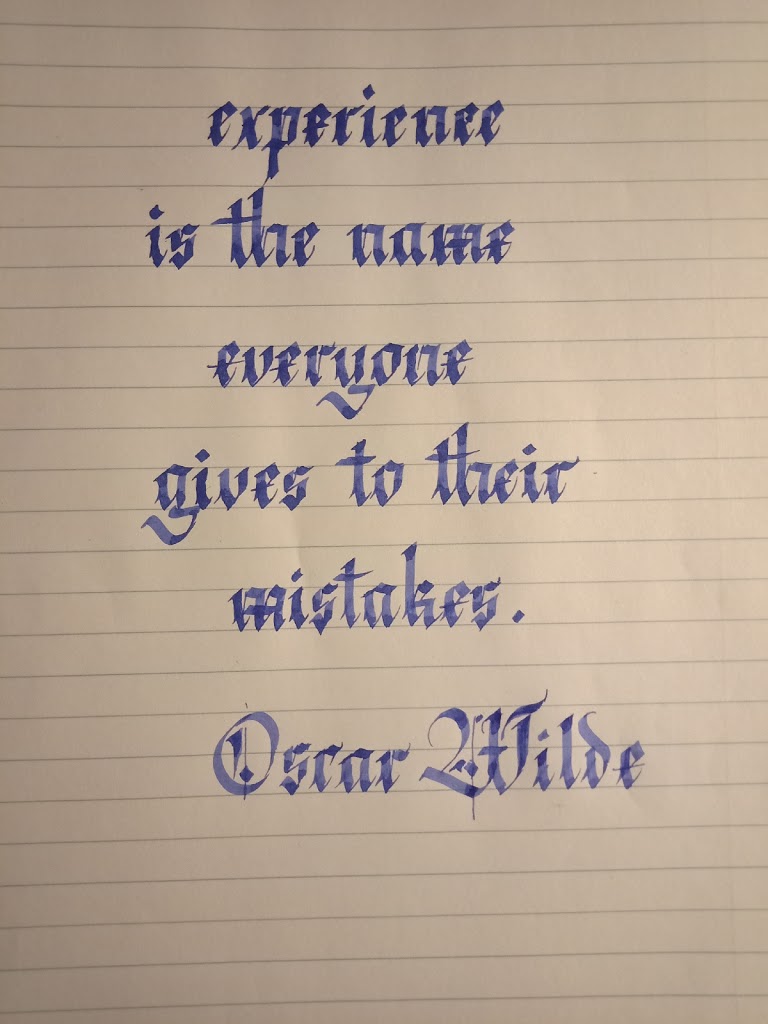 experience
is the name
everyone
gives to their
mistakes.
Oscar Wilde